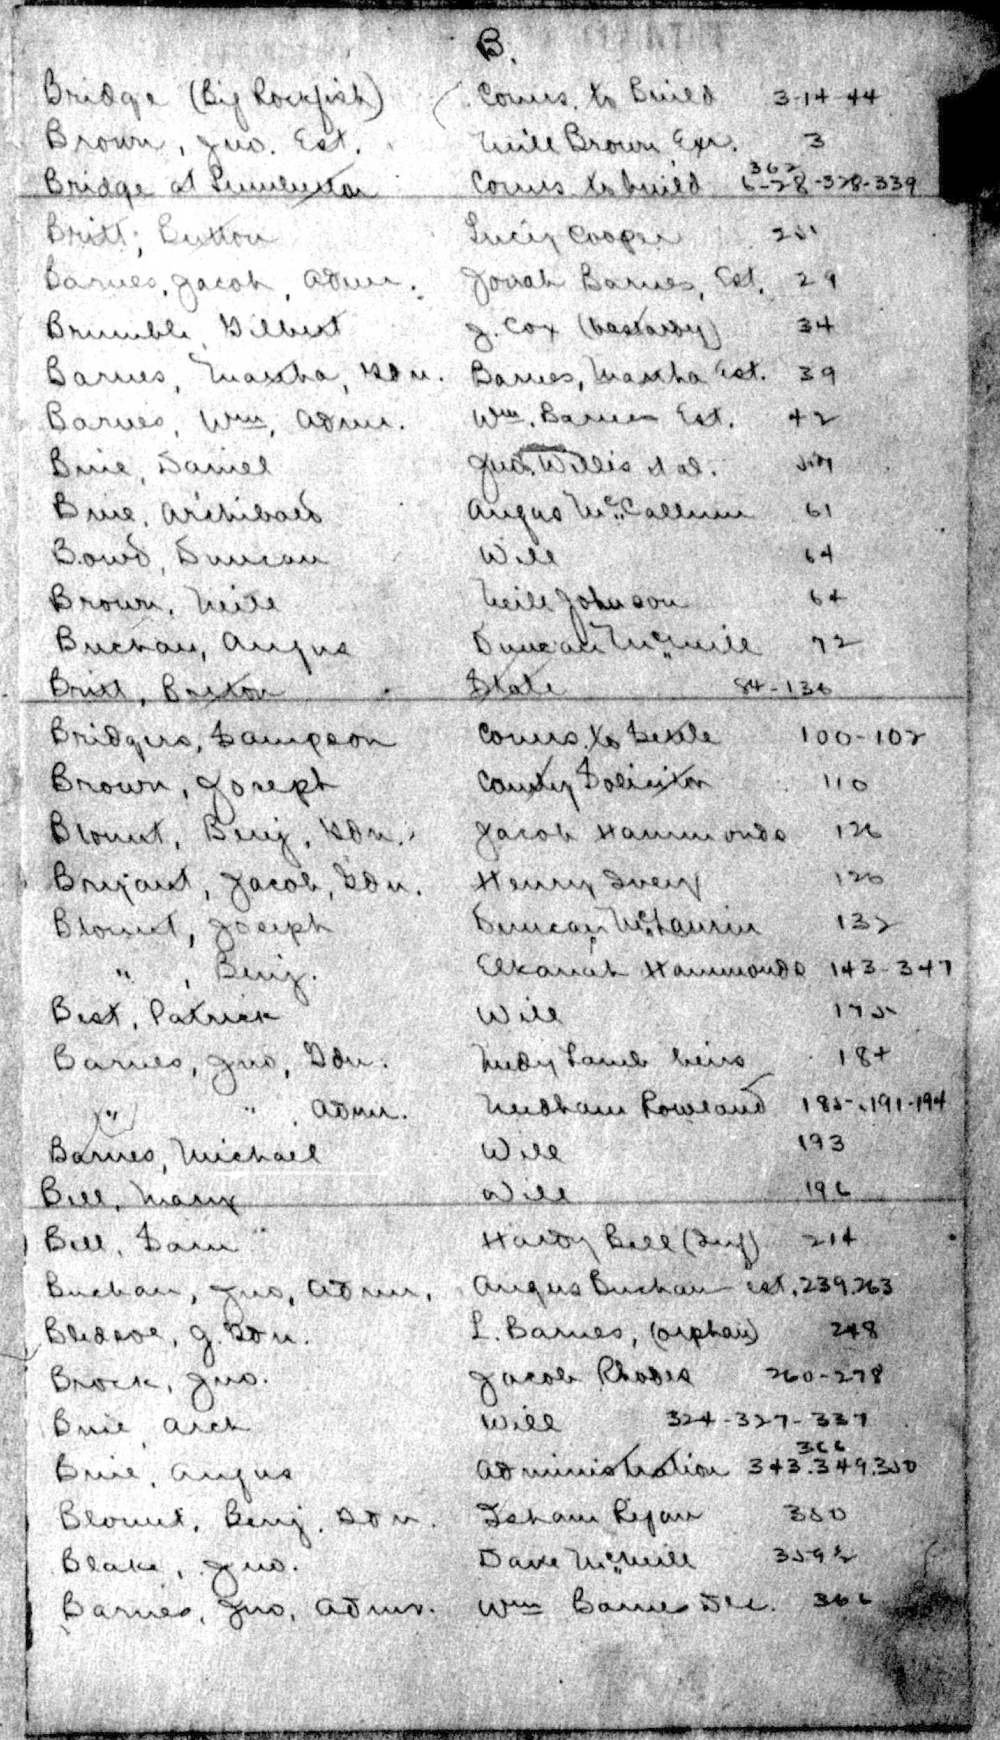 B.
Bridge (Big Rockfish) Comrs. to Build 3-14-44
Brown, Jno. Est. Neill Brown Exr. 3
Bridge at Lumberton Comrs to build 6-28-328-339 362
Britt, Britton Lucy Cooper
Barnes, Jacob, Admr. Josiah Barnes, Est. 29
Brumble, Gilbert J. Cox (bastardy) 34
Barnes, Martha, Gdn. Barnes, Martha Est. 39
Barnes, Wm, Admr. Wm. Barnes Est. 42
Buie, Daniel Jno. Willis et al.
Buie, Archibald Angus McCallum 61
Bowd, Duncan Will 64
Brown, Neill Neill Johnson 64
Buchan, Angus Duncan McNeill 72
Britt, Briton State 84-136
Bridgers, Sampson Comrs. to Settle 100-102
Brown, Joseph County Solicitor 110
Blount, Benj, Gdn. Jacob Hammonds 126
Bryant, Jacob, Gdn. Henry Ivey 126
Blount, Joseph Duncan McLaurin 132
" , Benj. Elkanah Hammonds 143-347
Best, Patrick Will 175
Barnes, Jno, Gdn. Nedy Lamb heirs 184
" " Admr. Needham Rowland 185-191-194
Barnes, Michael Will 193
Bell, Mary Will 196
Bell, Sam Hardy Bell (Inf) 214
Buchan, Jno, Admr, Angus Buchan est. 239.263
Bledsoe, J. Gdn. L. Barnes, (orphan) 248
Brock, Jno. Jacob Rhodes 260-278
Buie, Arch Will 324-327-337
Buie, Angus Administration 343.349.350 366
Blount, Benj. Gdn. Isham Ryan 350
Blake, Jno. Dave McNeill 359½
Barnes, Jno, Admr. Wm Barnes Dec. 366